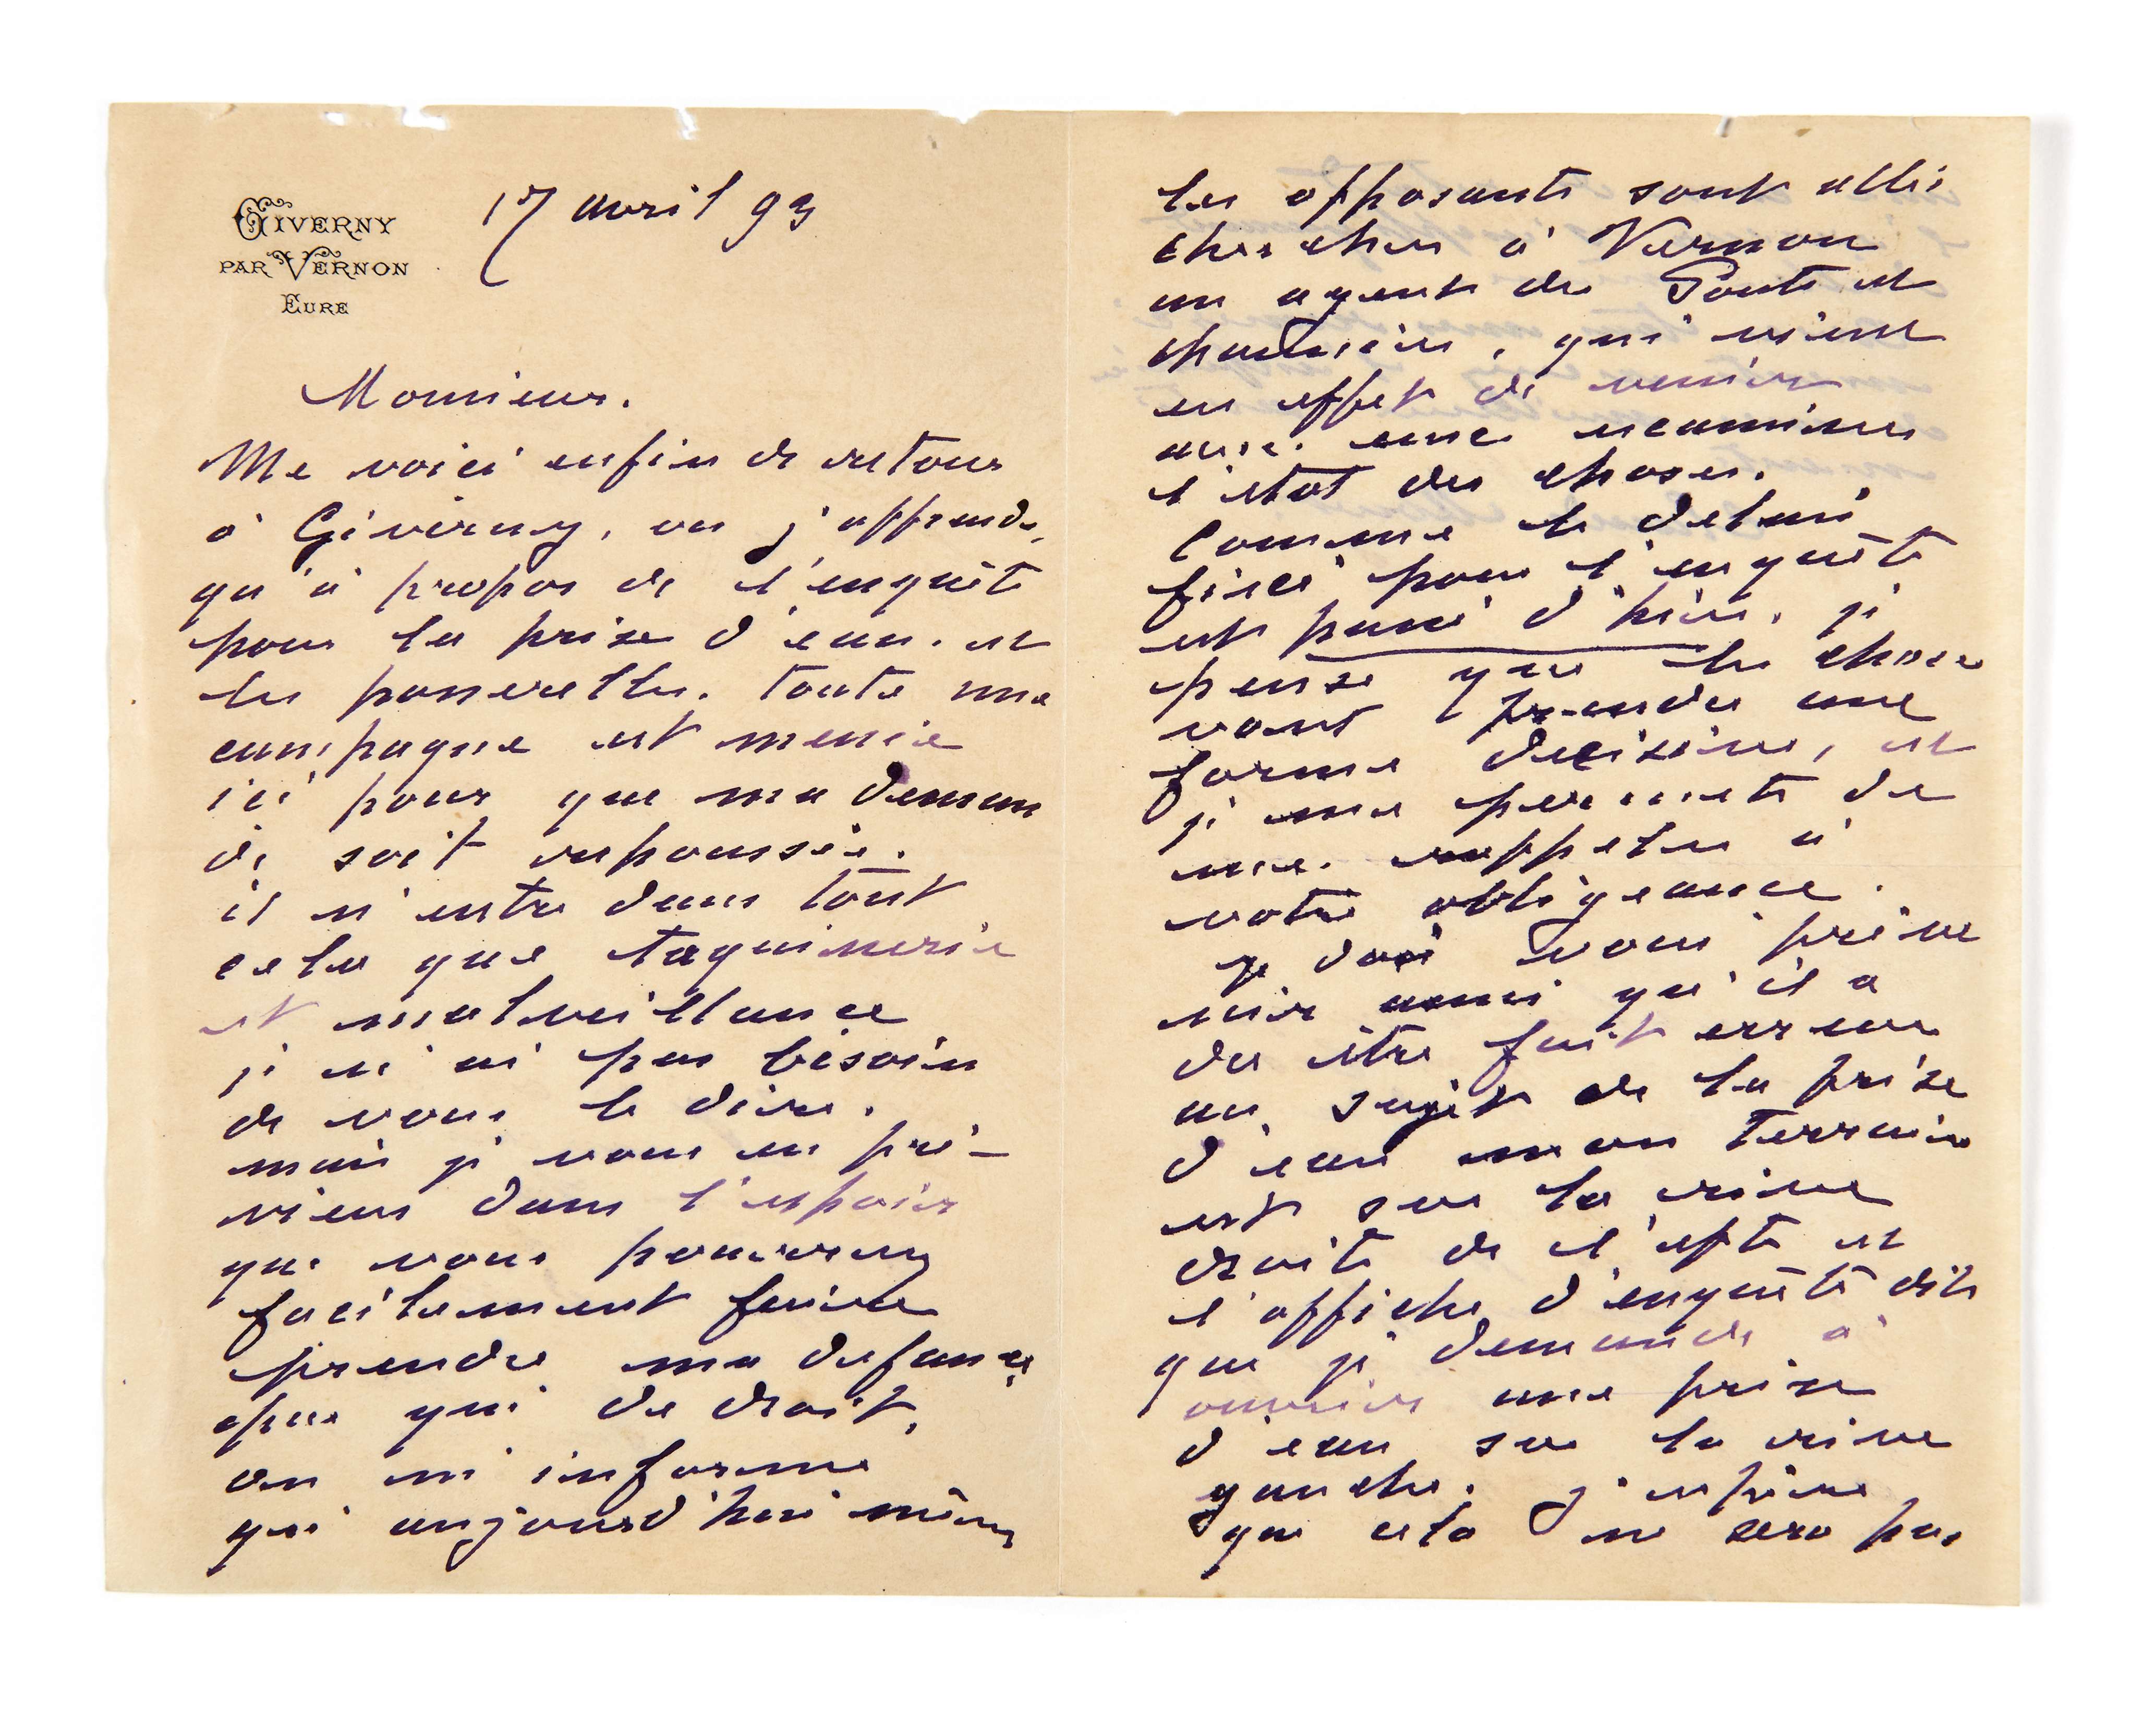 GIVERNY
PAR VERNON
EURE
17 avril 93
Monsieur.
Me voici enfin de retour
à Giverny, ou j'apprends,
qu'à propos de l'enquête
pour la prise d'eau. et
les passerelles. toute une
campagne est menée
ici pour que ma deman
de soit repoussée.
il n'entre dans tout
cela que taquinerie
et malveillance
je n'ai pas besoin
de vous le dire.
mais je vous en pré-
viens dans l'espoir
que vous pourrez
facilement faire
prendre ma defense
par qui de droit,
on m'informe
que aujourd'hui même
les opposants sont allés
chercher à Vernon
un agent des Ponts et
chaussées, qui vient
en effet de venir
avec eux examiner
l'état des choses.
Comme le delai
fixé pour l'enquête
est passé d'hier, je
pense que les choses
vont prendre une
forme decisive, et
je me permets de
me rappeler à
votre obligeance.
je dois vous préve
nir aussi qu'il a
du être fait erreur
au sujet de la prise
d'eau mon terrain
est sur la rive
droite de l'epte et
l'affiche d'enquête dit
que je demande à
ouvrir une prise
d'eau sur la rive
gauche. j'espère
que cela ne sera pas